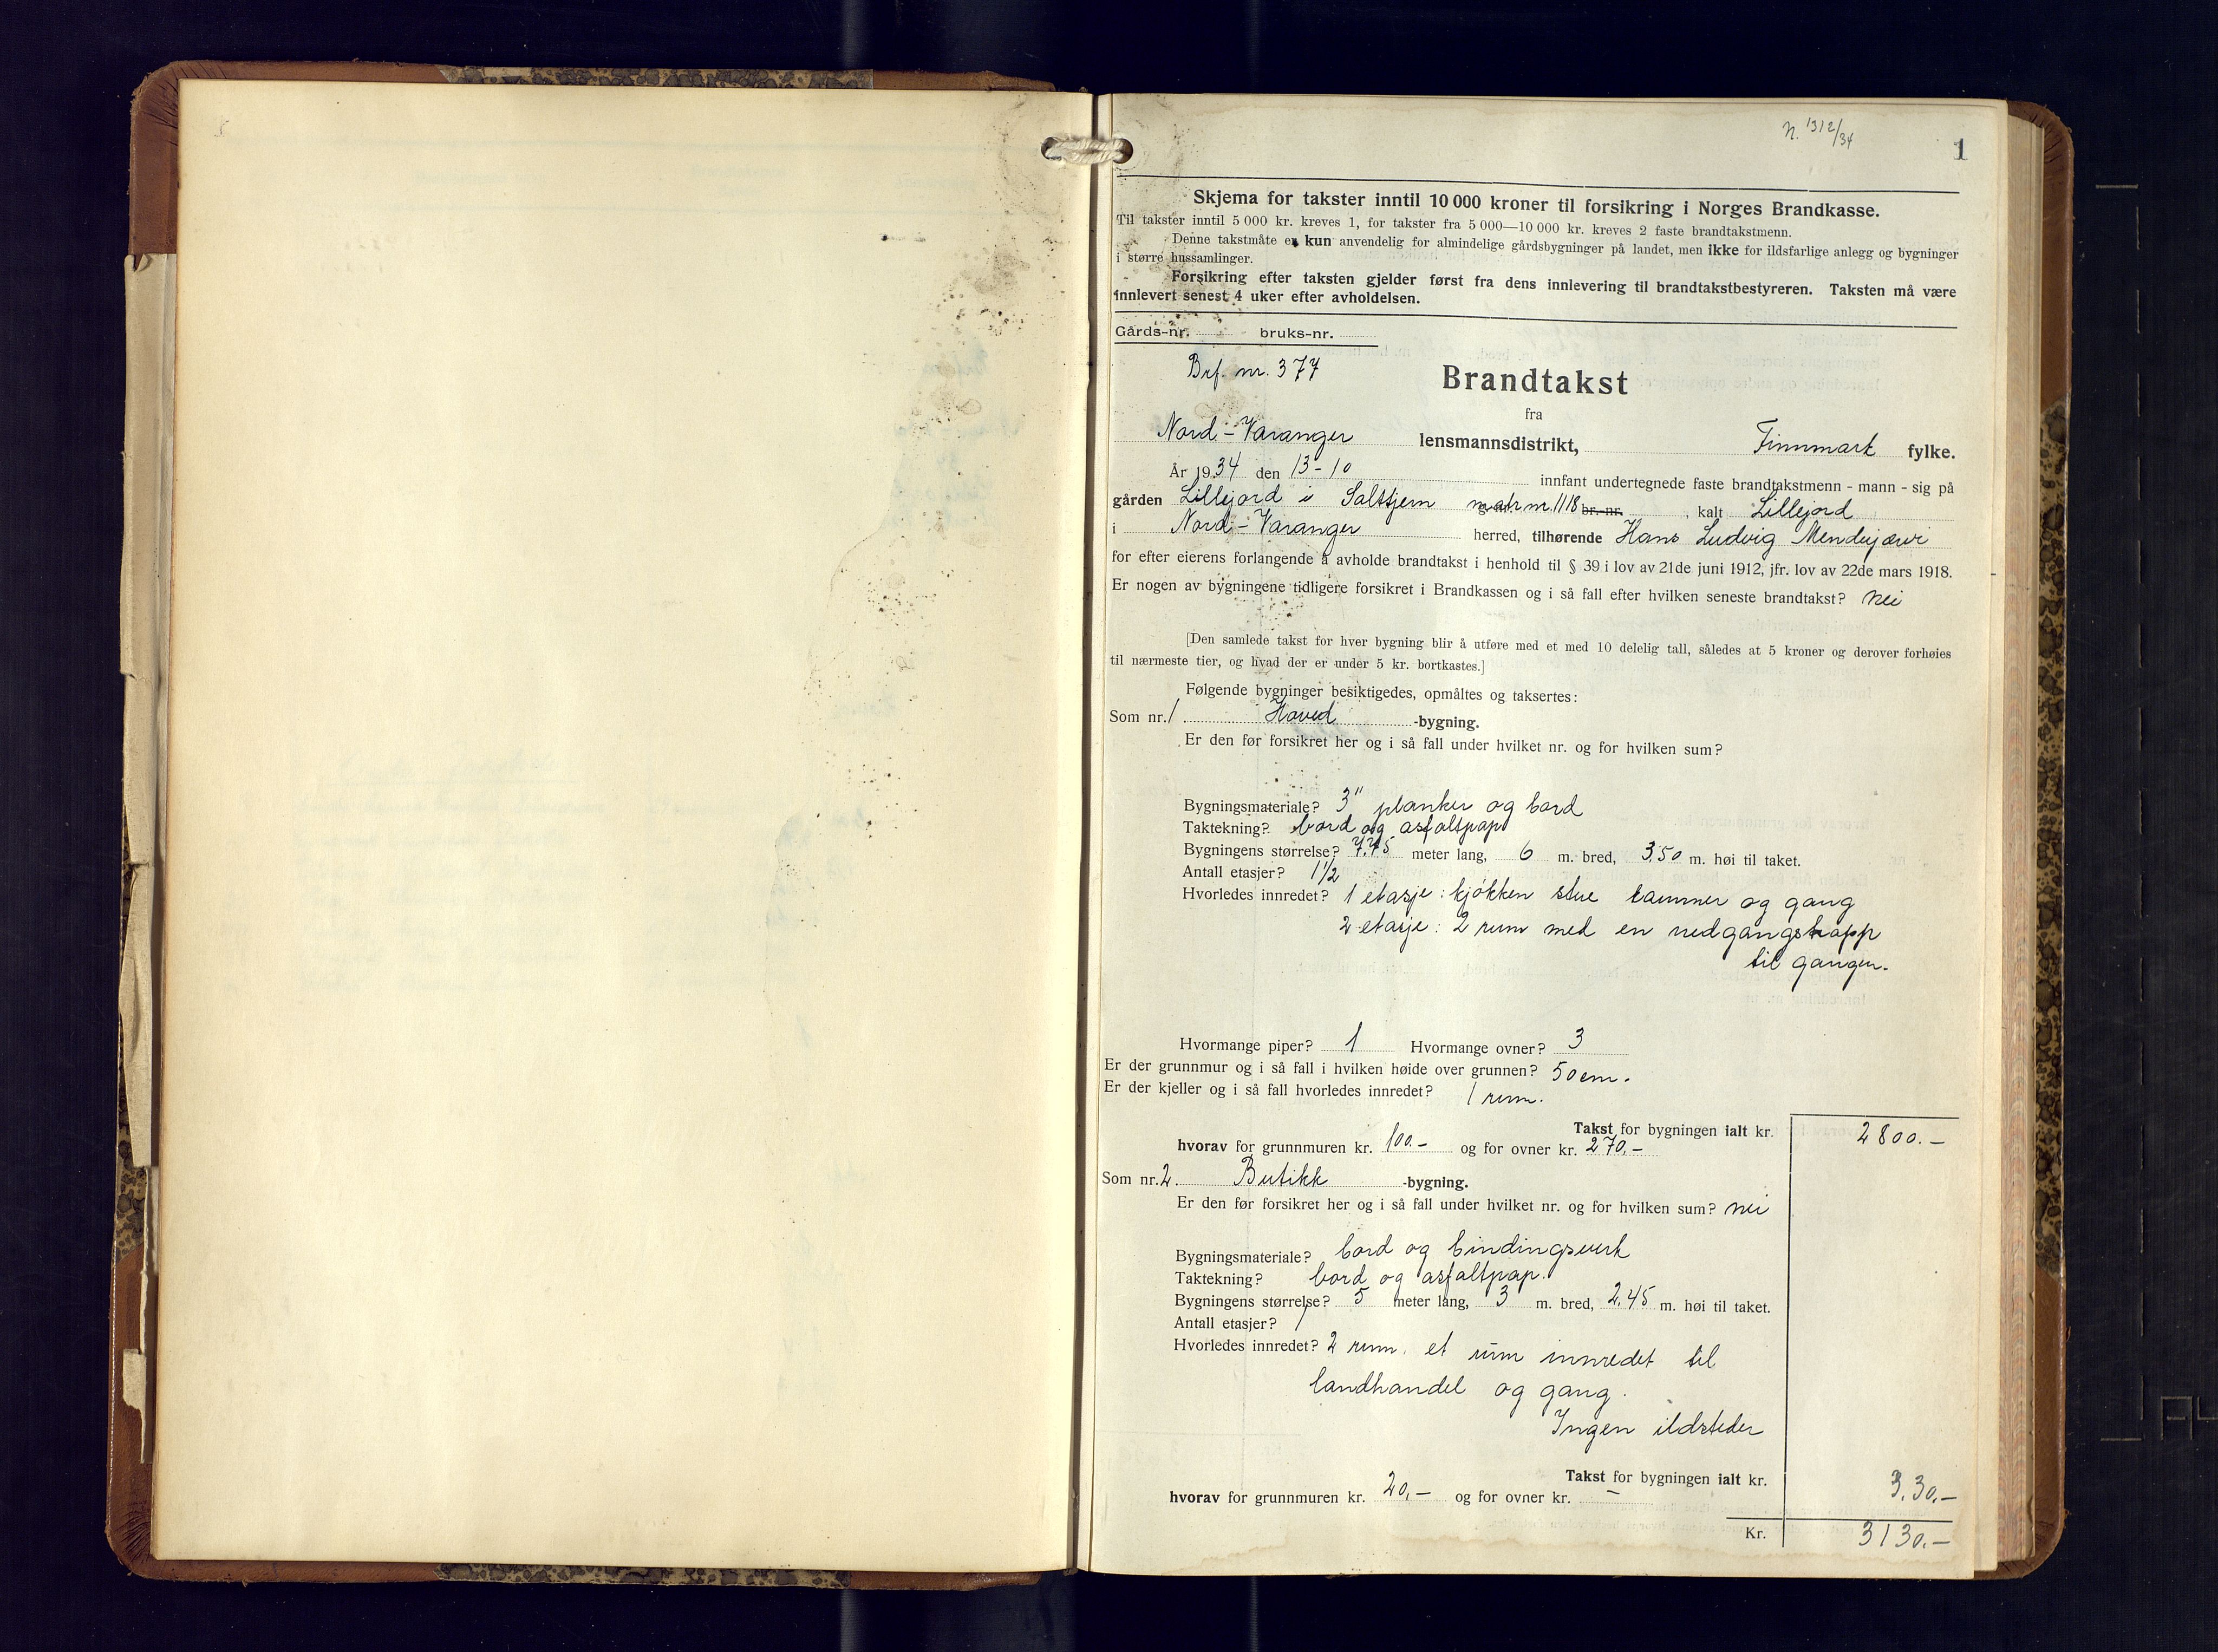 N. 1312/34
1
Skjema for takster inntil 10 000 kroner til forsikring i Norges Brandkasse.
Til takster inntil 5 000 kr. kreves 1, for takster fra 5 000—10 000 kr. kreves 2 faste brandtakstmenn.
Denne takstmåte er kun anvendelig for almindelige gårdsbygninger på landet, men ikke for ildsfarlige anlegg og bygninger
i større hussamlinger.
Forsikring efter taksten gjelder først fra dens innlevering til brandtakstbestyreren. Taksten må være
innlevert senest 4 uker efter avholdelsen.
Gårds-nr. bruks-nr.
Brf. nr. 377
Brandtakst
fra
Nord-Varanger lensmannsdistrikt, Finnmark fylke.
År 1934 den 13-10 innfant undertegnede faste brandtakstmenn - mann - sig på
gården Lillejord i Saltfjern matr nr. 1118 br.-nr. , kalt Lillejord
i Nord-Varanger herred, tilhørende Hans Ludvig Mendijærvi
for efter eierens forlangende å avholde brandtakst i henhold til § 39 i lov av 21de juni 1912, jfr. lov av 22de mars 1918.
Er nogen av bygningene tidligere forsikret i Brandkassen og i så fall efter hvilken seneste brandtakst? nei
[Den samlede takst for hver bygning blir å utføre med et med 10 delelig tall, således at 5 kroner og derover forhøies
til nærmeste tier, og hvad der er under 5 kr. bortkastes.]
Følgende bygninger besiktigedes, opmåltes og taksertes:
Som nr. 1 Hoved -bygning.
Er den før forsikret her og i så fall under hvilket nr. og for hvilken sum?
Bygningsmateriale? 3" planker og bord
Taktekning? bord og asfaltpap
Bygningens størrelse? 7.75 meter lang, 6 m. bred, 3.50 m. høi til taket.
Antall etasjer? 1 1/2
Hvorledes innredet? 1 etasje: kjøkken stue kammer og gang
2 etasje: 2 rum med en nedgangstrapp
til gangen.
Hvormange piper? 1 Hvormange ovner? 3
Er der grunnmur og i så fall i hvilken høide over grunnen? 50 cm.
Er der kjeller og i så fall hvorledes innredet? 1 rum.
Takst for bygningen ialt kr. 2800.-
hvorav for grunnmuren kr. 100.- og for ovner kr. 270.-
Som nr. 2. Butikk -bygning.
Er den før forsikret her og i så fall under hvilket nr. og for hvilken sum? nei
Bygningsmateriale? bord og bindingsverk
Taktekning? bord og asfaltpap.
Bygningens størrelse? 5 meter lang, 3 m. bred, 2.45 m. høi til taket.
Antall etasjer? 1
Hvorledes innredet? 2 rum. et rum innredet til
landhandel og gang.
Ingen ildsteder
Takst for bygningen ialt kr. 3.30.-
hvorav for grunnmuren kr. 20.- og for ovner kr. —
Kr. 3130.-